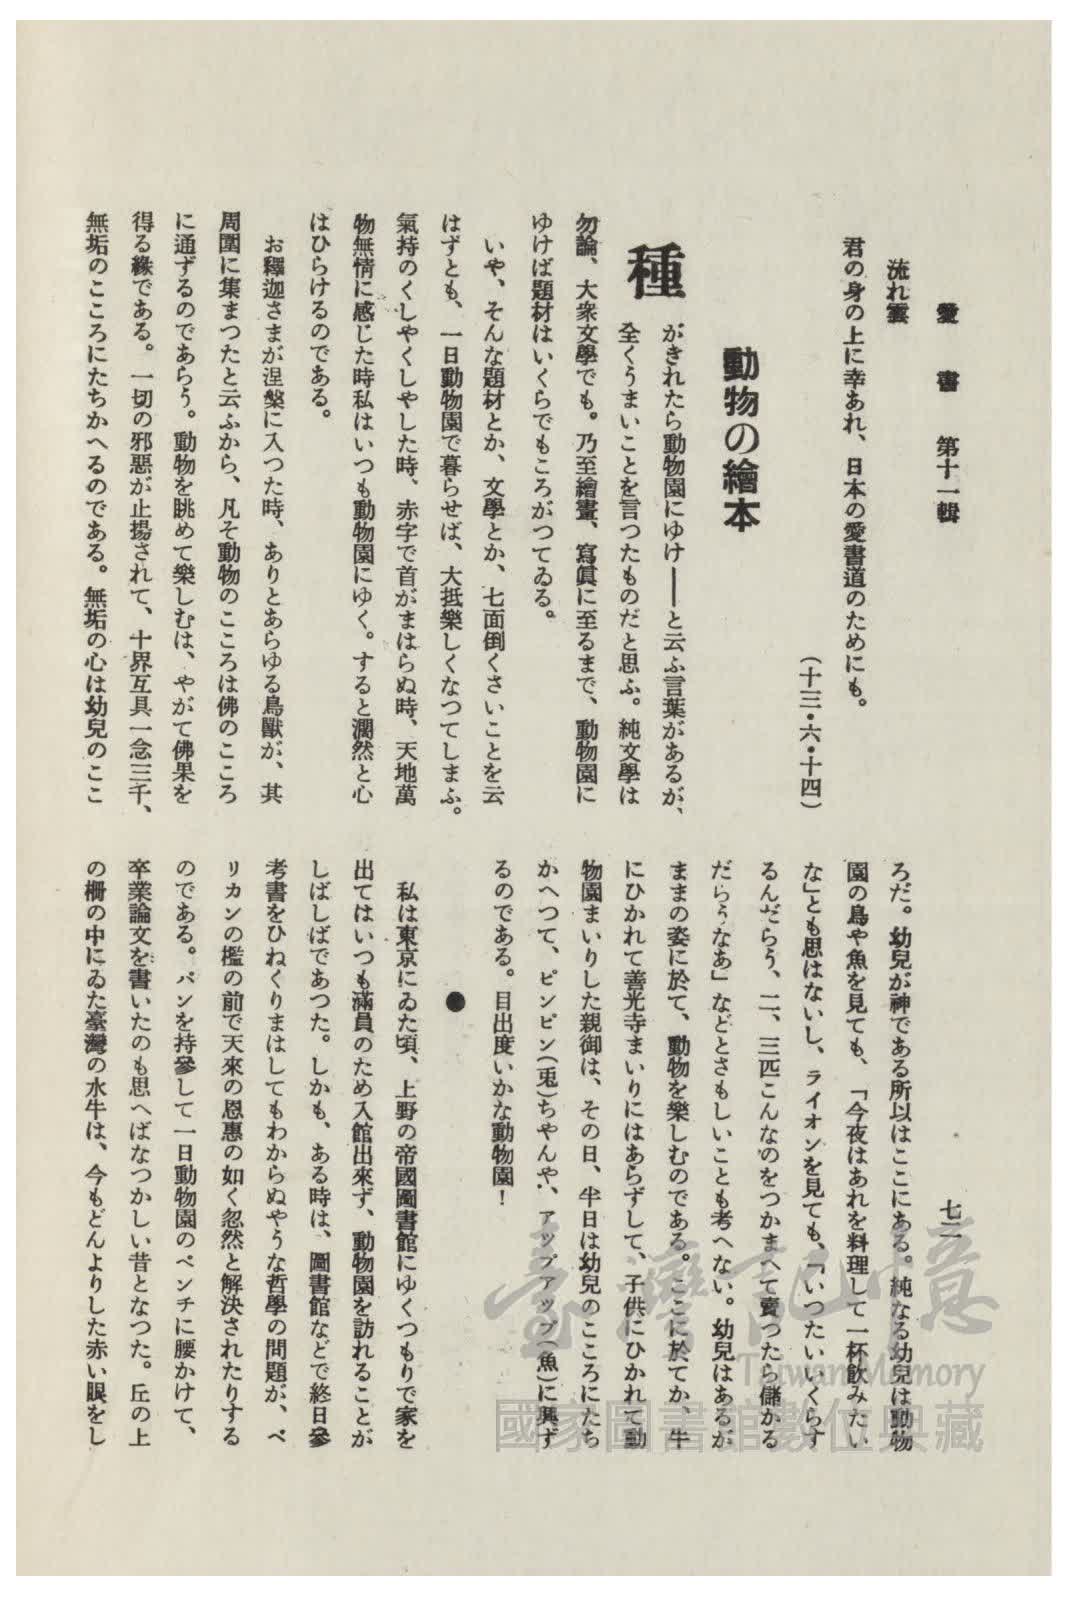 愛書 第十一輯
七二
流れ雲
君の身の上に幸あれ、日本の愛書道のためにも。
(十三・六・十四)
動物の繪本
種がきれたら動物園にゆけ——と云ふ言葉があるが、
全くうまいことを言つたものだと思ふ。純文學は
勿論、大衆文學でも。乃至繪畫、寫眞に至るまで、動物園に
ゆけば題材はいくらでもころがつてゐる。
いや、そんな題材とか、文學とか、七面倒くさいことを云
はずとも、一日動物園で暮らせば、大抵樂しくなつてしまふ。
氣持のくしやくしやした時、赤字で首がまはらぬ時、天地萬
物無情に感じた時私はいつも動物園にゆく。すると濶然と心
はひらけるのである。
お釋迦さまが涅槃に入つた時、ありとあらゆる鳥獸が、其
周圍に集まつたと云ふから、凡そ動物のこころは佛のこころ
に通ずるのであらう。動物を眺めて樂しむは、やがて佛果を
得る緣である。一切の邪惡が止揚されて、十界互具一念三千、
無垢のこころにたちかへるのである。無垢の心は幼兒のここ
ろだ。幼兒が神である所以はここにある。純なる幼兒は動物
園の鳥や魚を見ても、「今夜はあれを料理して一杯飮みたい
な」とも思はないし、ライオンを見ても、「いつたいいくらす
るんだらう、二、三匹こんなのをつかまへて賣つたら儲かる
だらうなあ」などとさもしいことも考へない。幼兒はあるが
ままの姿に於て、動物を樂しむのである。ここに於てか、牛
にひかれて善光寺まいりにはあらずして、子供にひかれて動
物園まいりした親御は、その日、半日は幼兒のこころにたち
かへつて、ピンピン(兎)ちやんや、アップアップ(魚)に興ず
るのである。目出度いかな動物園!
●
私は東京にゐた頃、上野の帝國圖書館にゆくつもりで家を
出てはいつも滿員のため入館出來ず、動物園を訪れることが
しばしばであつた。しかも、ある時は、圖書館などで終日參
考書をひねくりまはしてもわからぬやうな哲學の問題が、ペ
リカンの檻の前で天來の恩惠の如く忽然と解決されたりする
のである。パンを持參して一日動物園のベンチに腰かけて、
卒業論文を書いたのも思へばなつかしい昔となつた。丘の上
の柵の中にゐた臺灣の水牛は、今もどんよりした赤い眼をし
臺灣記憶
Taiwan Memory
國家圖書館數位典藏